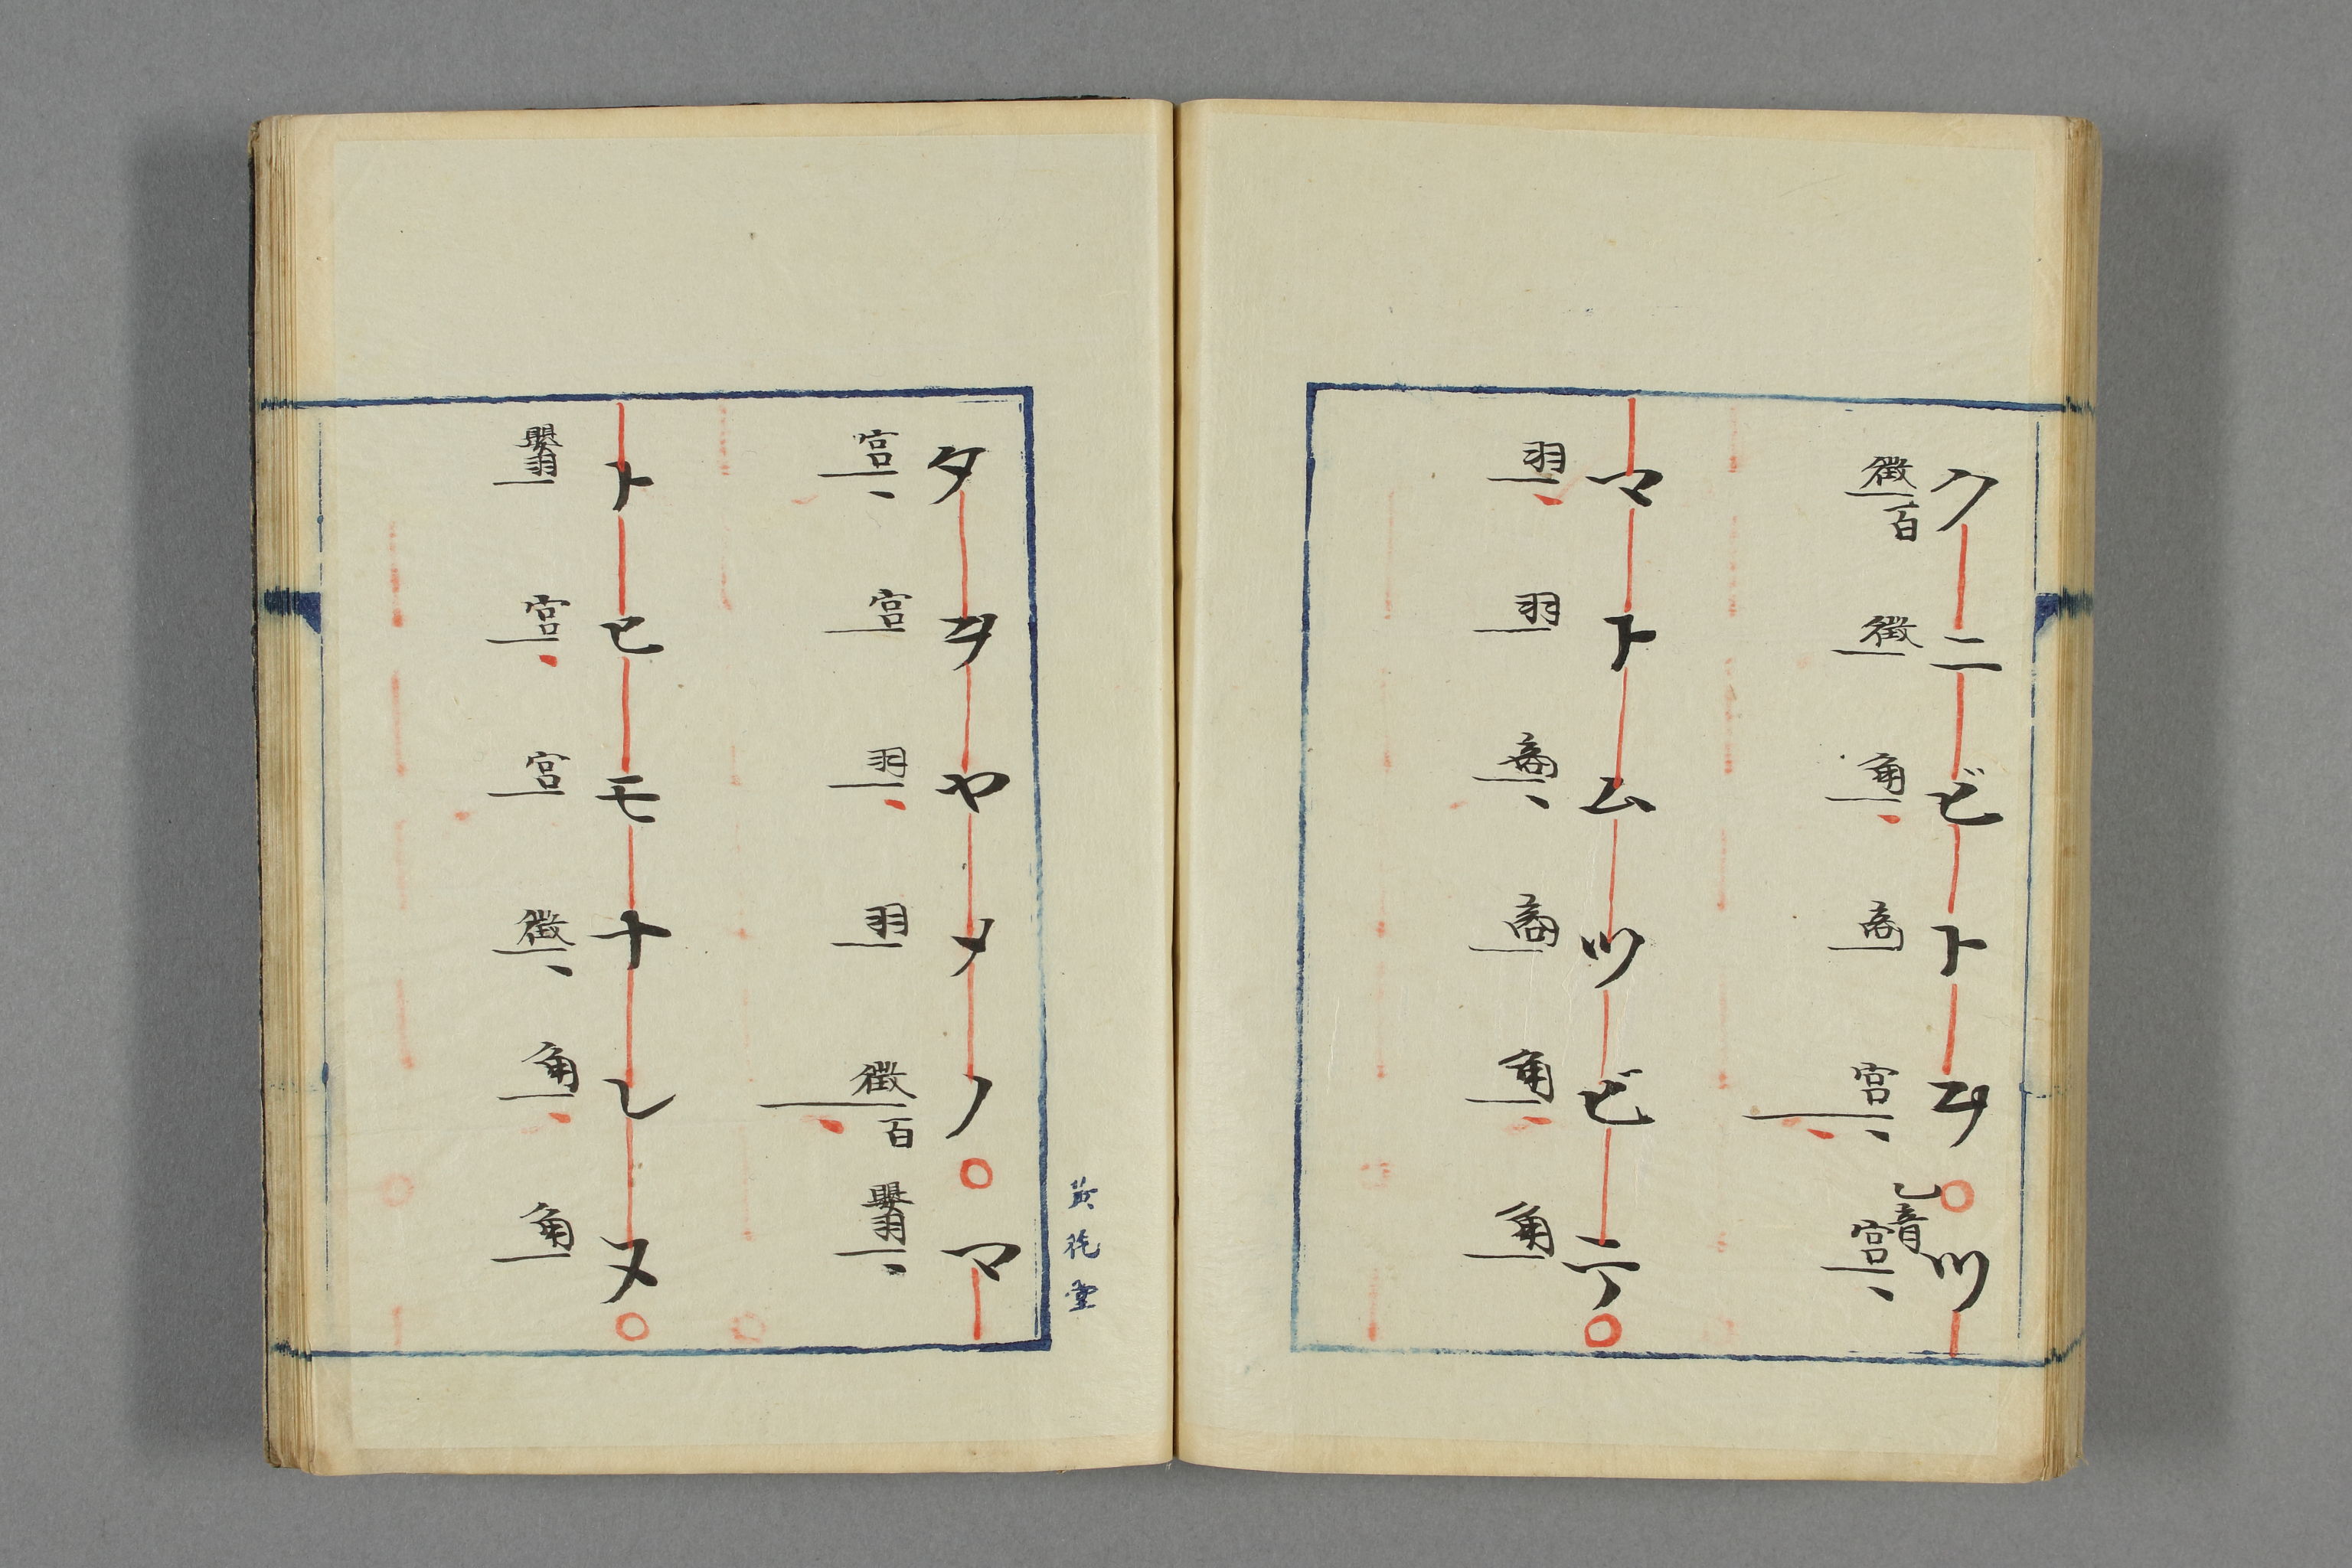 クニビトヲ○ツ
徴百 徴 角 商 宮 乙音 宮
マトムツビテ○
羽 羽 商 商 角 角
タヲヤメノ○マ
宮 宮 羽 羽 徴百 嬰羽
トヒモナレヌ○
嬰羽 宮 宮 徴 角 角